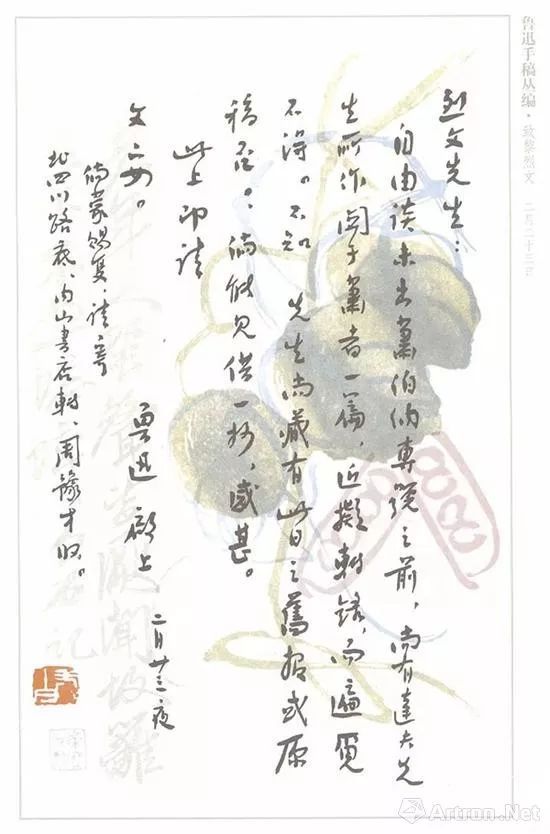 鲁迅手稿丛编·致黎烈文 二月二十三日
烈文先生：
自由谈未出萧伯纳专号之前，尚有达夫先
生所作关于萧者一篇，近拟转录，而遍觅
不得。不知 先生尚藏有此日之旧报或原
稿否？倘能见借一抄，感甚。
此上 即请
文安。
鲁迅 启上 二月廿三夜
倘蒙赐复，请寄
北四川路底、内山书店转、周豫才收。
Artron.Net